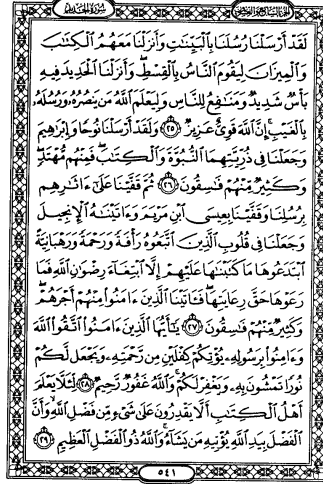 الجزء السابع والعشرون سورة الحديد
لَقَدْ أَرْسَلْنَا رُسُلَنَا بِالْبَيِّنَاتِ وَأَنزَلْنَا مَعَهُمُ الْكِتَابَ
وَالْمِيزَانَ لِيَقُومَ النَّاسُ بِالْقِسْطِ وَأَنزَلْنَا الْحَدِيدَ فِيهِ
بَأْسٌ شَدِيدٌ وَمَنَافِعُ لِلنَّاسِ وَلِيَعْلَمَ اللَّهُ مَن يَنصُرُهُ وَرُسُلَهُ
بِالْغَيْبِ إِنَّ اللَّهَ قَوِيٌّ عَزِيزٌ ٢٥ وَلَقَدْ أَرْسَلْنَا نُوحًا وَإِبْرَاهِيمَ
وَجَعَلْنَا فِي ذُرِّيَّتِهِمَا النُّبُوَّةَ وَالْكِتَابَ فَمِنْهُم مُّهْتَدٍ
وَكَثِيرٌ مِّنْهُمْ فَاسِقُونَ ٢٦ ثُمَّ قَفَّيْنَا عَلَىٰ ءَاثَارِهِم
بِرُسُلِنَا وَقَفَّيْنَا بِعِيسَى ابْنِ مَرْيَمَ وَءَاتَيْنَاهُ الْإِنجِيلَ
وَجَعَلْنَا فِي قُلُوبِ الَّذِينَ اتَّبَعُوهُ رَأْفَةً وَرَحْمَةً وَرَهْبَانِيَّةً
ابْتَدَعُوهَا مَا كَتَبْنَاهَا عَلَيْهِمْ إِلَّا ابْتِغَاءَ رِضْوَانِ اللَّهِ فَمَا
رَعَوْهَا حَقَّ رِعَايَتِهَا فَـَٔاتَيْنَا الَّذِينَ ءَامَنُوا مِنْهُمْ أَجْرَهُمْ
وَكَثِيرٌ مِّنْهُمْ فَاسِقُونَ ٢٧ يَا أَيُّهَا الَّذِينَ ءَامَنُوا اتَّقُوا اللَّهَ
وَءَامِنُوا بِرَسُولِهِ يُؤْتِكُمْ كِفْلَيْنِ مِن رَّحْمَتِهِ وَيَجْعَل لَّكُمْ
نُورًا تَمْشُونَ بِهِ وَيَغْفِرْ لَكُمْ وَاللَّهُ غَفُورٌ رَّحِيمٌ ٢٨ لِّئَلَّا يَعْلَمَ
أَهْلُ الْكِتَابِ أَلَّا يَقْدِرُونَ عَلَىٰ شَيْءٍ مِّن فَضْلِ اللَّهِ وَأَنَّ
الْفَضْلَ بِيَدِ اللَّهِ يُؤْتِيهِ مَن يَشَاءُ وَاللَّهُ ذُو الْفَضْلِ الْعَظِيمِ ٢٩
٥٤١